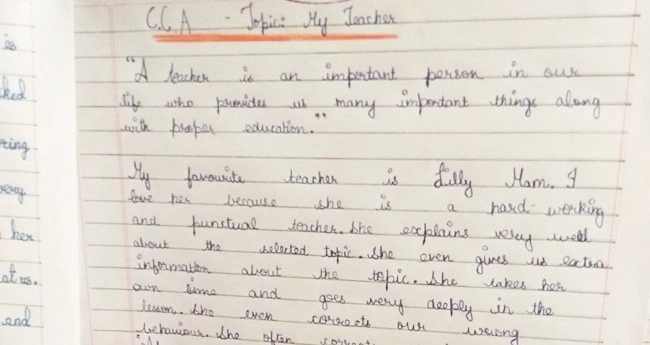 C.C.A - Topic: My Teacher
"A teacher is an important person in our
life who provides us many important things along
with proper education."
My favourite teacher is Lilly Mam. I
love her because she is a hard-working
and punctual teacher. She explains very well
about the selected topic. She even gives us extra
information about the topic. She takes her
own time and goes very deeply in the
lesson. She even corrects our wrong
behaviour. She often
is
ked
ring
very
her
at us.
and